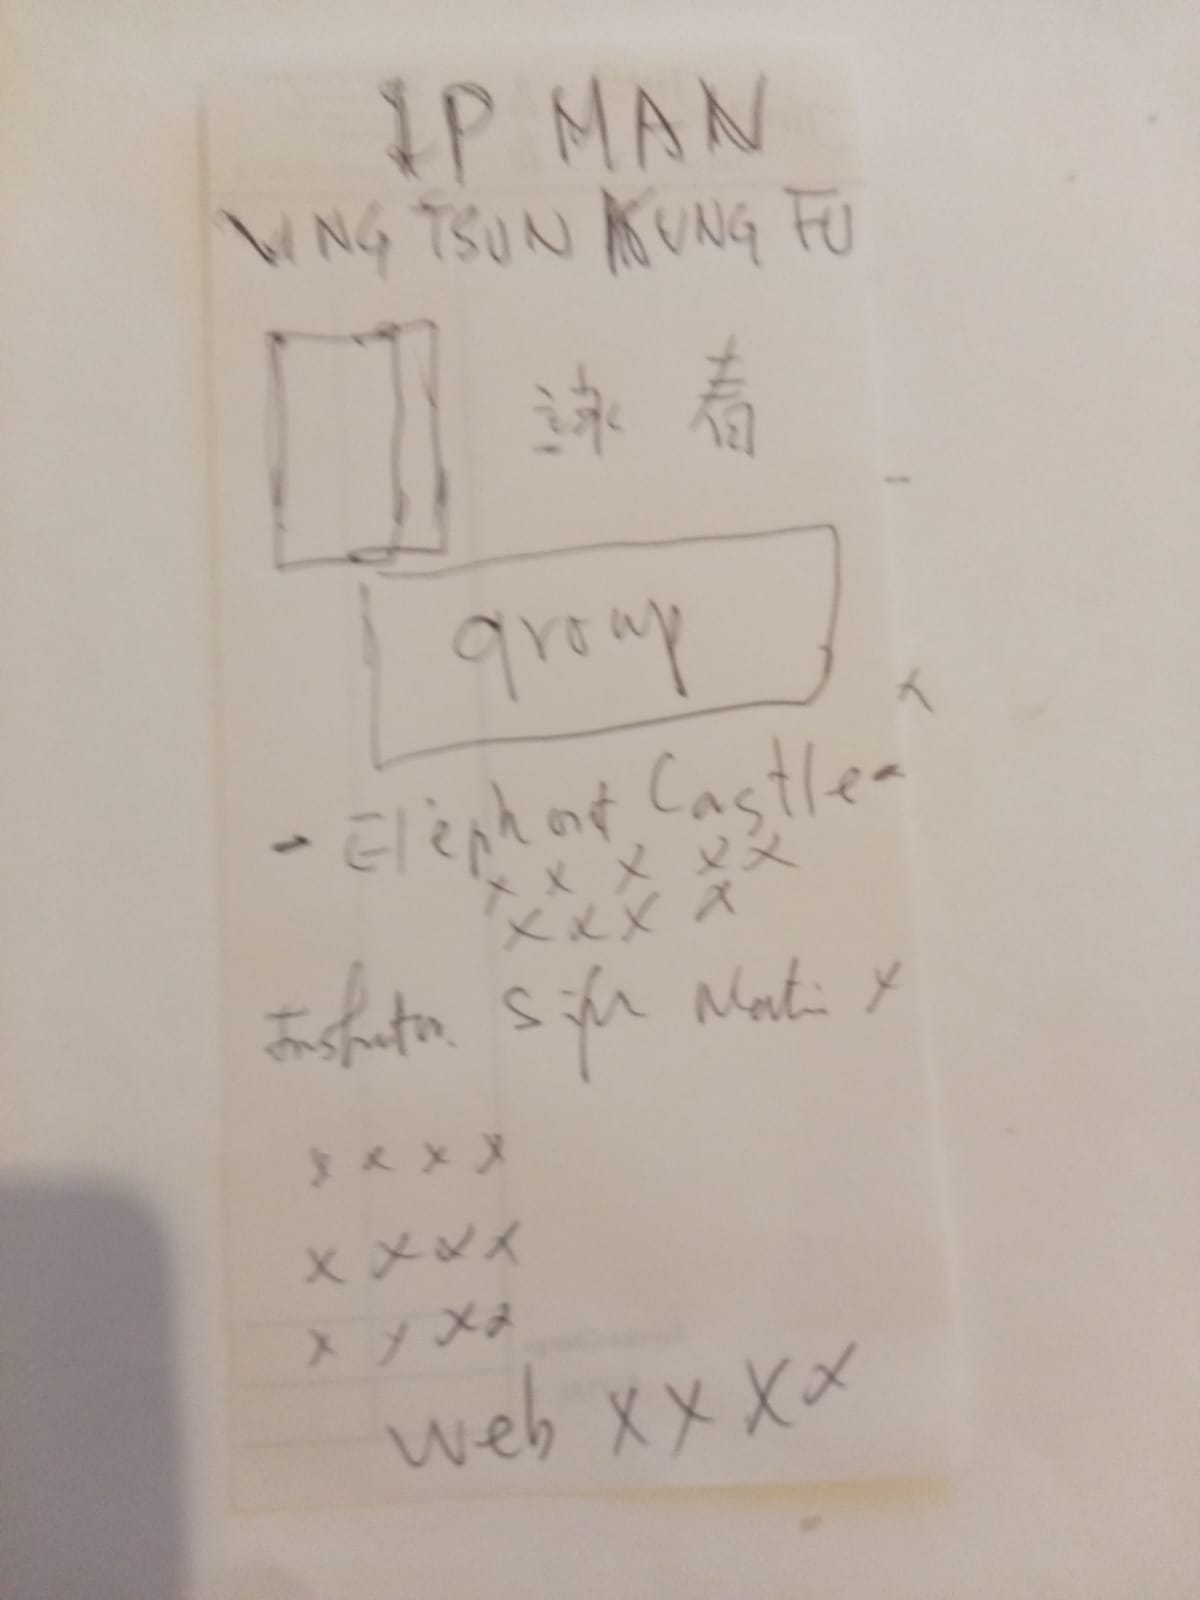 IP MAN
VING TSUN KUNG FU
詠春
group
x
- Elephant Castle -
x x x x x
x x x x
Instructor Sifu Martin x
x x x x
x x x x
x x x x
web x x x x